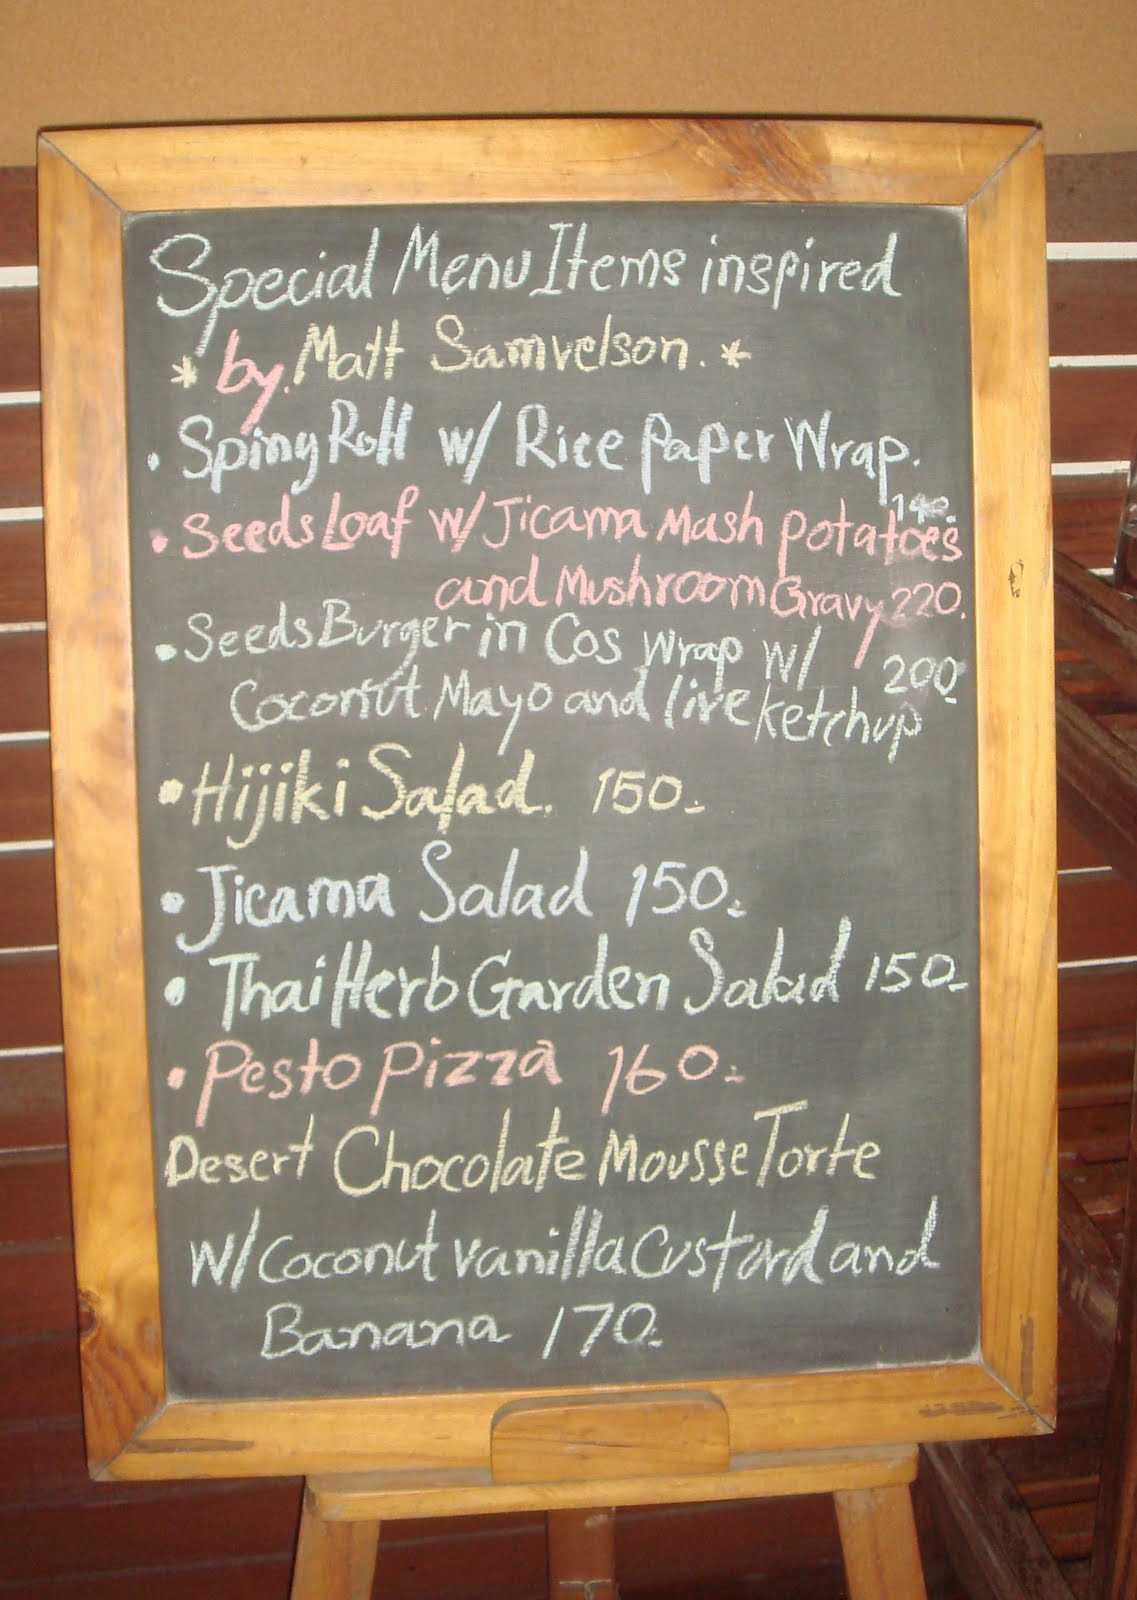 Special Menu Items inspired
* by. Matt Samvelson. *
• Sping Roll w/ Rice Paper Wrap.
140.
• Seeds Loaf w/ Jicama Mash potatoes
and Mushroom Gravy 220.
• Seeds Burger in Cos wrap w/ 200
Coconut Mayo and live ketchup
• Hijiki Salad. 150.-
• Jicama Salad 150.-
• Thai Herb Garden Salad 150-
• Pesto Pizza 160.-
Desert Chocolate Mousse Torte
w/ Coconut vanilla Custard and
Banana 170.-